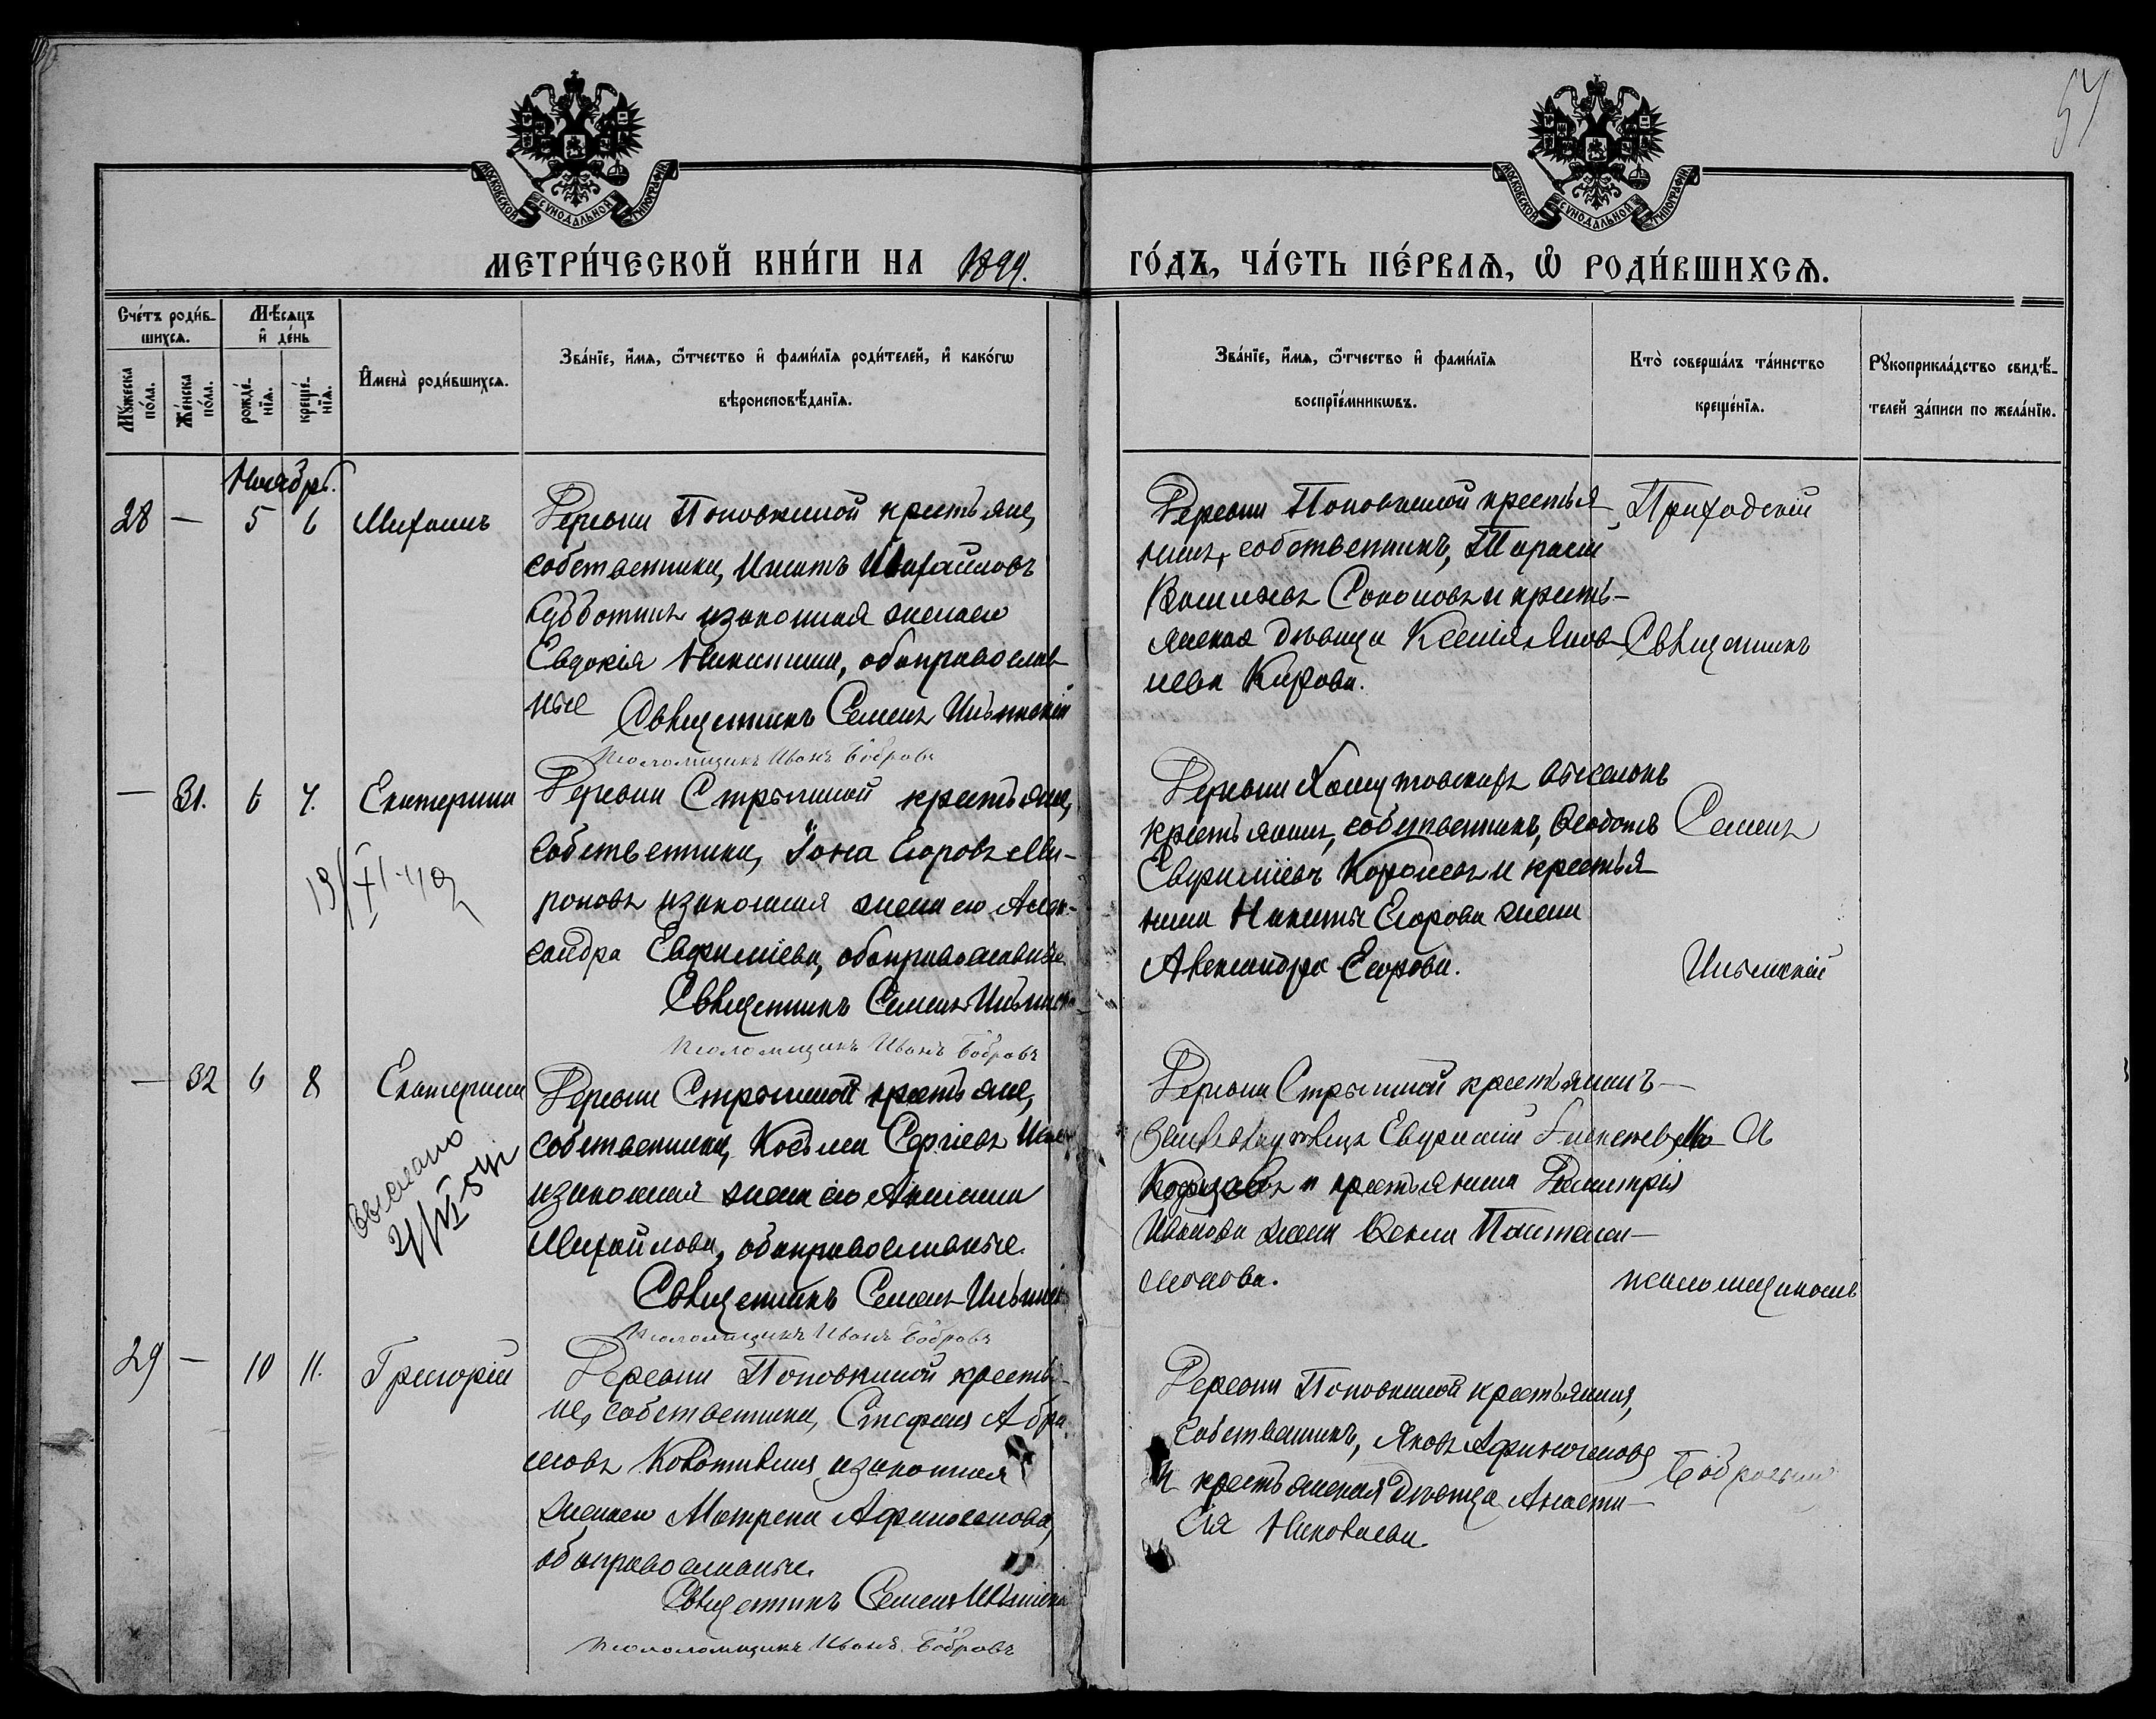 54
МОСКОВСКОЙ СУНОДАЛЬНОЙ ТИПОГРАФІИ
МОСКОВСКОЙ СУНОДАЛЬНОЙ ТИПОГРАФІИ
МЕТРИ́ЧЕСКОЙ КНИ́ГИ НА 1899.
ГО́ДЪ, ЧА́СТЬ ПЕ́РВАѦ, Ѿ РОДИ́ВШИХСѦ.
Сче́тъ роди́в-
шихсѧ.
Мѣ́сѧцъ
и҆ де́нь
Мꙋ́жеска по́ла.
Же́нска по́ла.
рожде́-нїѧ.
креще́-нїѧ.
И҆мена̀ роди́вшихсѧ.
Зва́нїе, и҆́мѧ, ѻ҆́тчество и҆ фами́лїѧ роди́телей, и҆ како́гѡ
вѣроисповѣ́данїѧ.
Зва́нїе, и҆́мѧ, ѻ҆́тчество и҆ фами́лїѧ
воспрїе́мникѡвъ.
Кто̀ соверша́лъ та́инство
креще́нїѧ.
Рꙋкоприкла́дство свидѣ́-
телей за́писи по жела́нїю.
Ноябрь.
28 — 5 6 Михаилъ
Деревни Поповкиной крестьяне,
собственники, Игнатъ Михайловъ
Субботинъ изаконная женаею
Евдокія Никитина, обаправослав-
ные Священникъ Семенъ Ильинскій
Псаломщикъ Иванъ Бобровъ
Деревни Поповкиной крестья-
нинъ, собственникъ, Тарасій
Васильевъ Соколовъ и кресть-
янская дѣвица Ксенія Яков-
лева Карпова.
Приходскій
Священникъ
— 31. 6 7. Екатерина
19/XI-40
Деревни Стрыгиной крестьяне,
собственники, Іона Егоровъ Ми-
роновъ изаконная жена его Алек-
сандра Евфиміева, обаправославные
Священникъ Семенъ Ильинск
Псаломщикъ Иванъ Бобровъ
Деревни Хомутовскихъ выселокъ
крестьянинъ, собственникъ, Ѳеодотъ
Евфиміевъ и крестья-
нина Никиты Егорова жена
Александра Егорова.
Семенъ
Ильинскій
— 32 6 8 Екатерина
выслано
21/VI-54г
Деревни Стрыгиной крестьяне,
собственники, Косьма Сергіевъ
изаконная жена его Аксинія
Михайлова, обаправославные.
Священникъ Семенъ Ильинскі
Псаломщикъ Иванъ Бобровъ
Деревни Стрыгиной крестьянинъ-
Евфимій
и крестьянина Димитрія
Иванова жена Ѳекла Пантелей-
монова.
съ
псаломщикомъ
29 — 10 11. Григорій
Деревни Поповкиной крестья-
не, собственники, Стефанъ Абра-
мовъ изаконная
женаею Матрена Афиногенова,
обаправославные.
Священникъ Семенъ Ильинскі
Псаломщикъ Иванъ Бобровъ
Деревни Поповкиной крестьянинъ,
собственникъ, Яковъ Афиногеновъ
и крестьянская дѣвица Анаста-
сія Николаева.
Бобровымъ